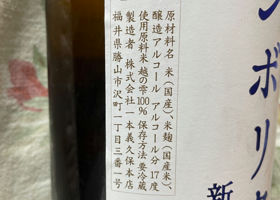 ンボリ
新
原材料名 米(国産)、米麹(国産米)、
醸造アルコール アルコール分17度
使用原料米 越の雫100% 保存方法 要冷蔵
製造者 株式会社一本義久保本店
福井県勝山市沢町一丁目三番一号